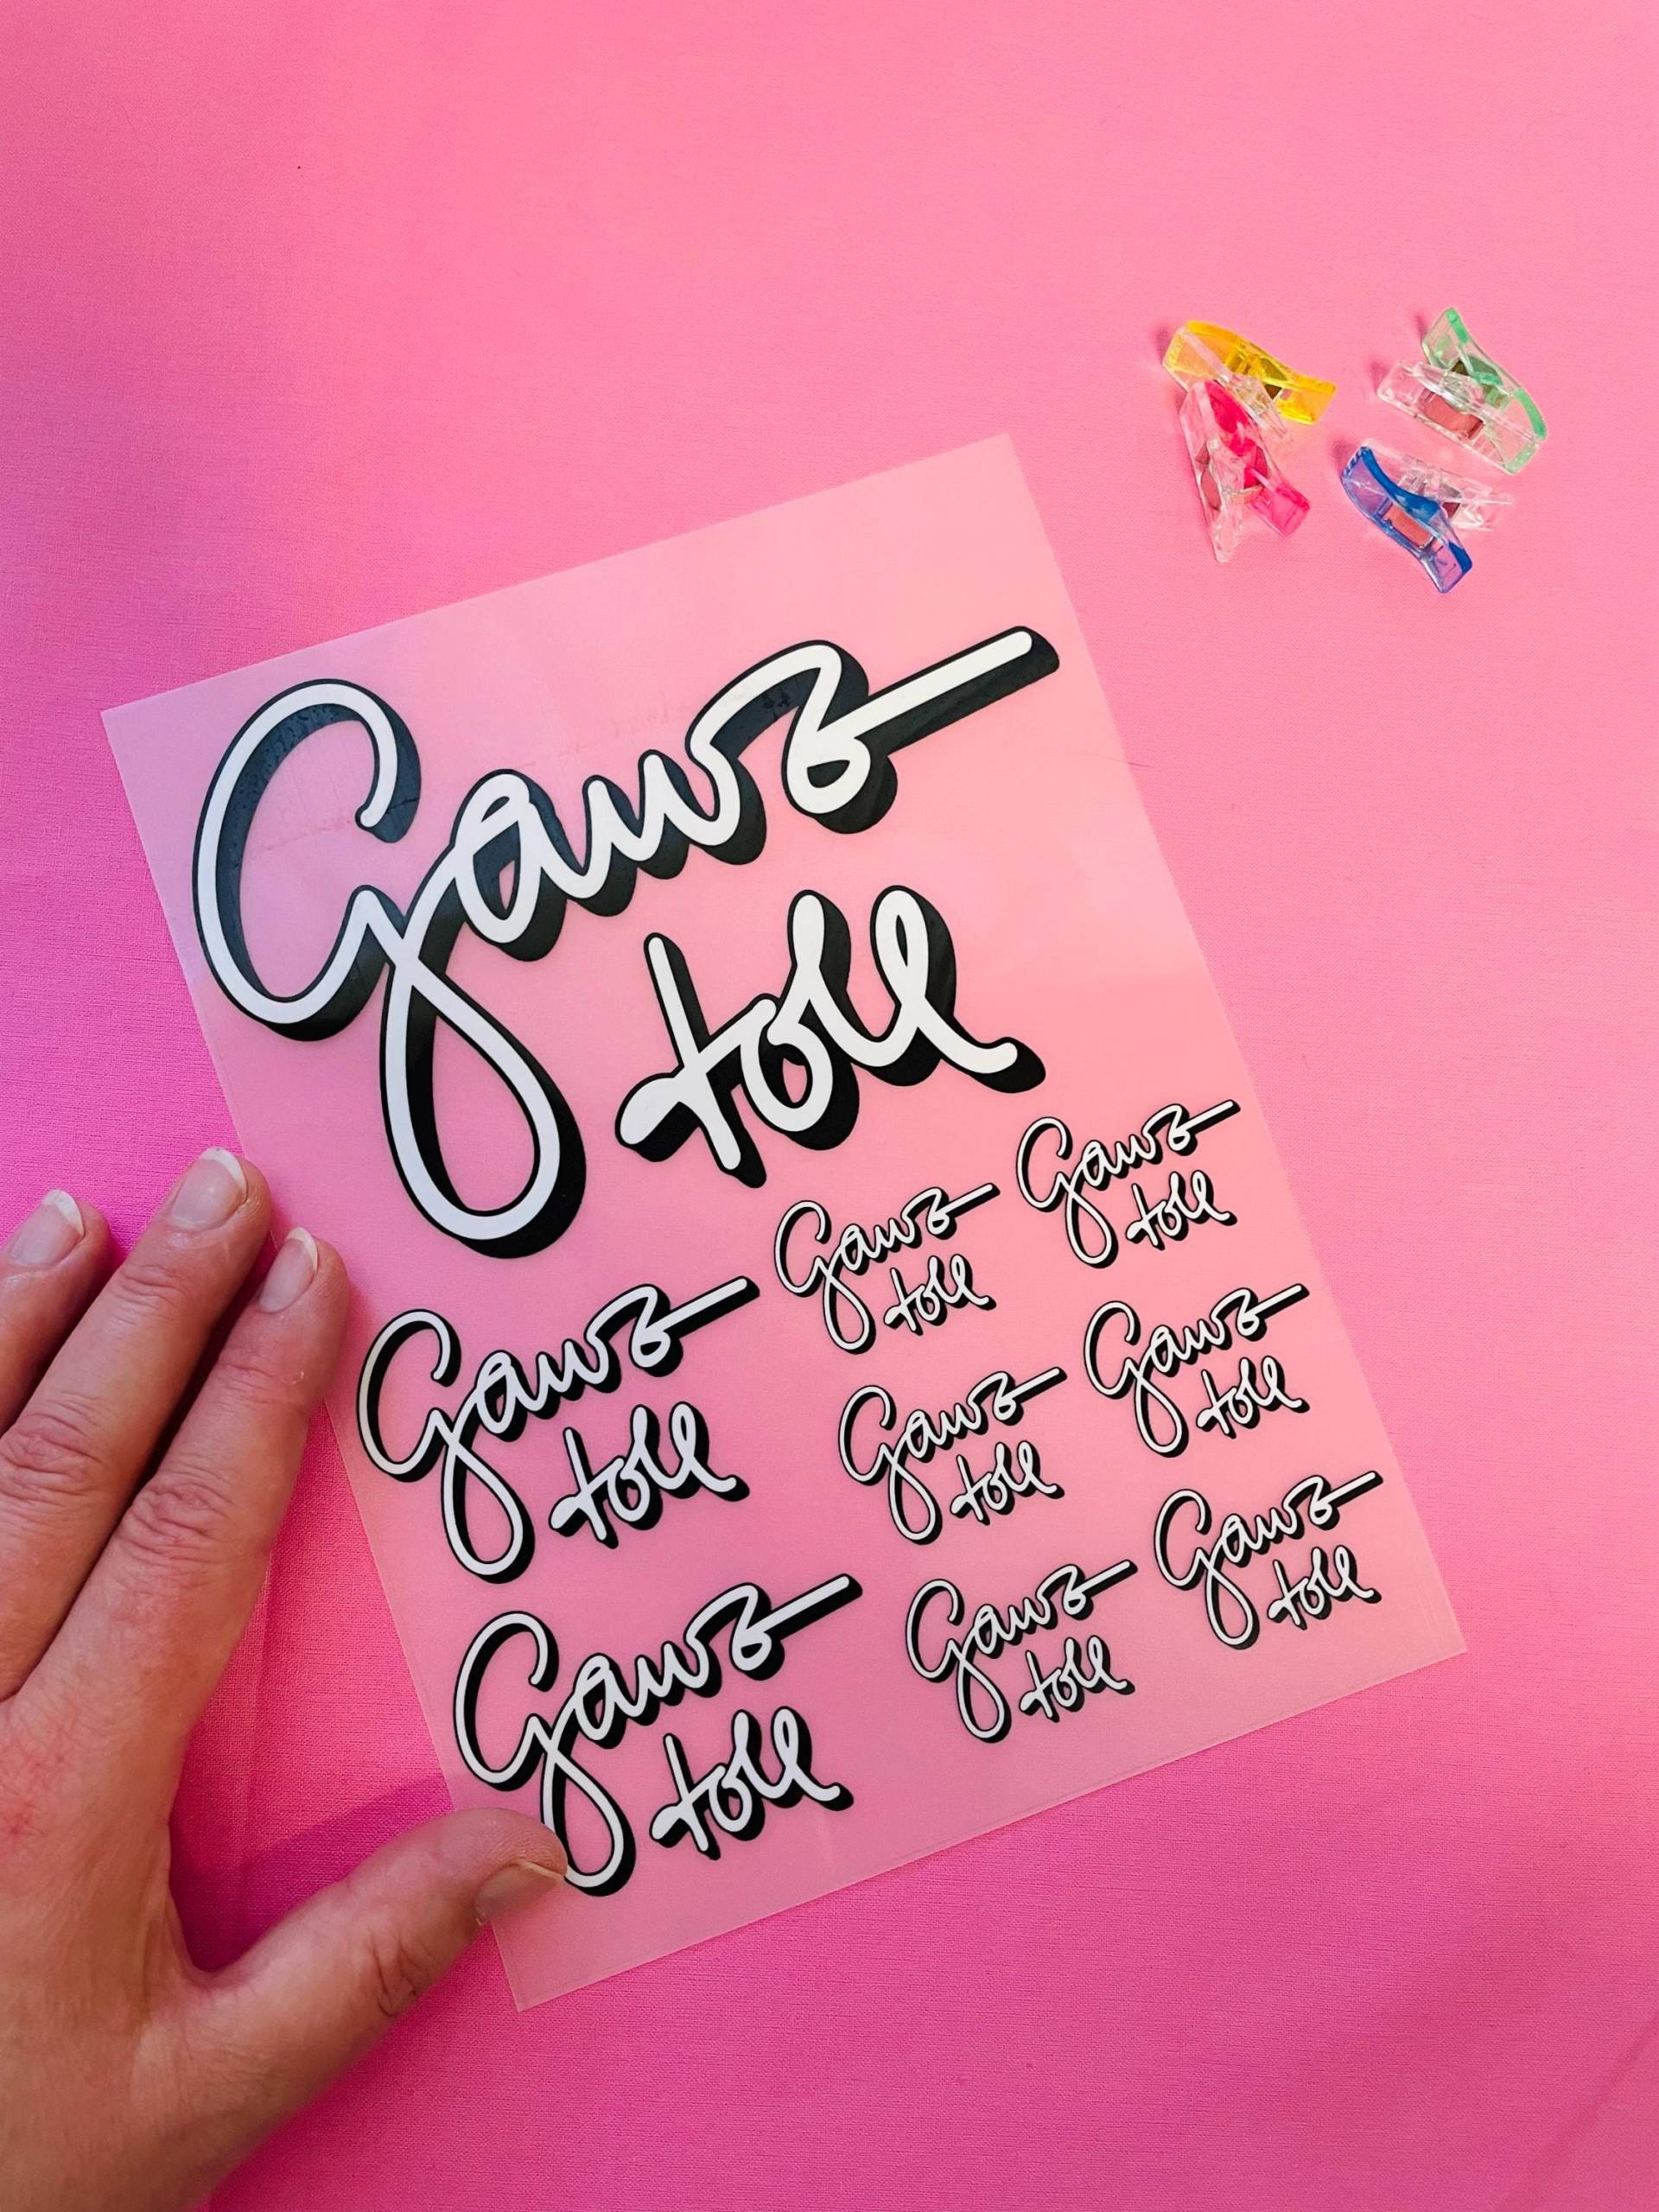 Ganz
toll
Ganz
toll
Ganz
toll
Ganz
toll
Ganz
toll
Ganz
toll
Ganz
toll
Ganz
toll
Ganz
toll